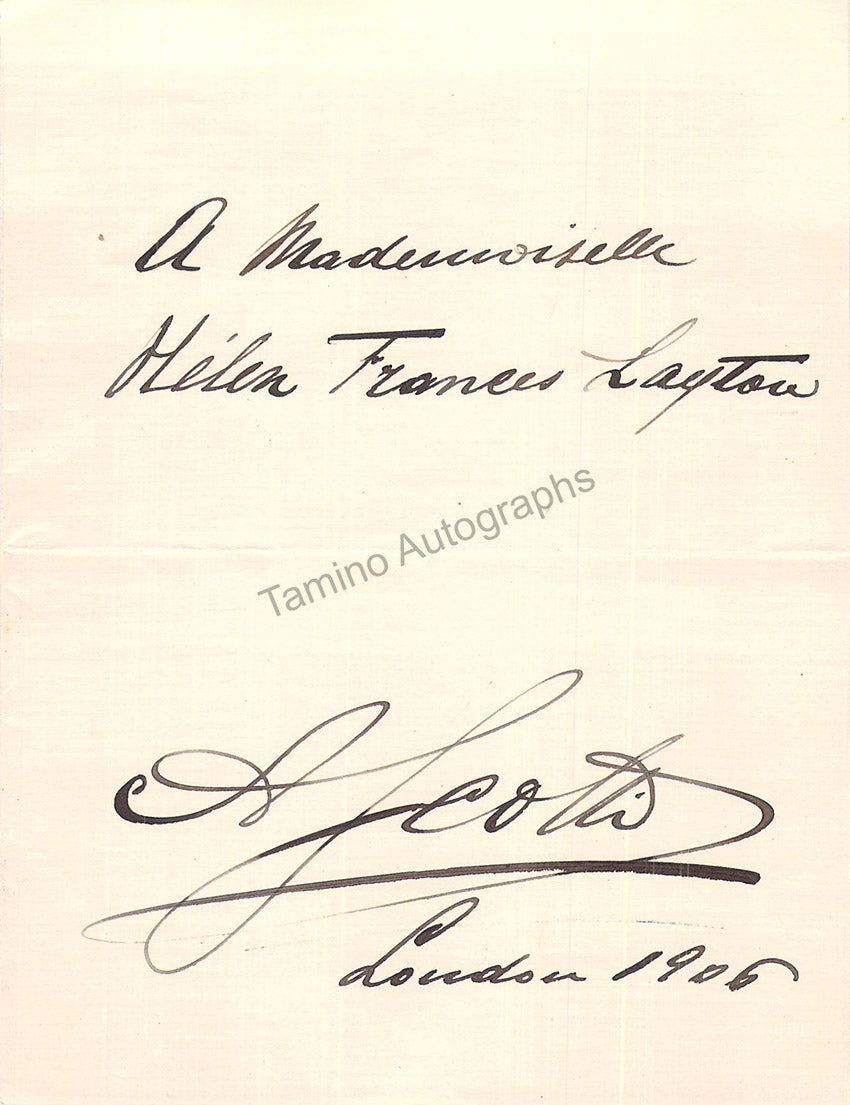 A Mademoiselle
Hélen Frances Layton
Tamino Autographs
A Scotti
London 1906